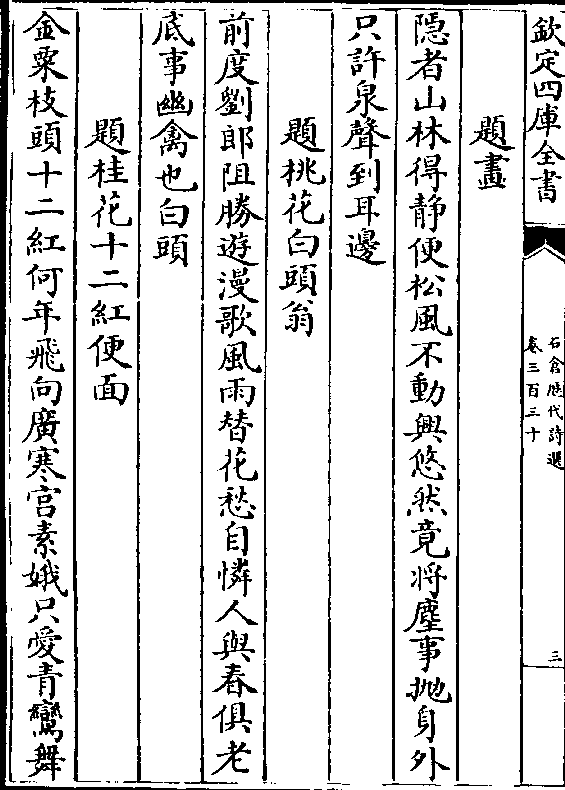 欽定四庫全書
石倉歷代詩選
卷三百三十
三
題畫
隱者山林得静便松風不動興悠然竟將塵事抛身外
只許泉聲到耳邊
題桃花白頭翁
前度劉郎阻勝遊漫歌風雨替花愁自憐人與春俱老
底事幽禽也白頭
題桂花十二紅便面
金粟枝頭十二紅何年飛向廣寒宫素娥只愛青鸞舞